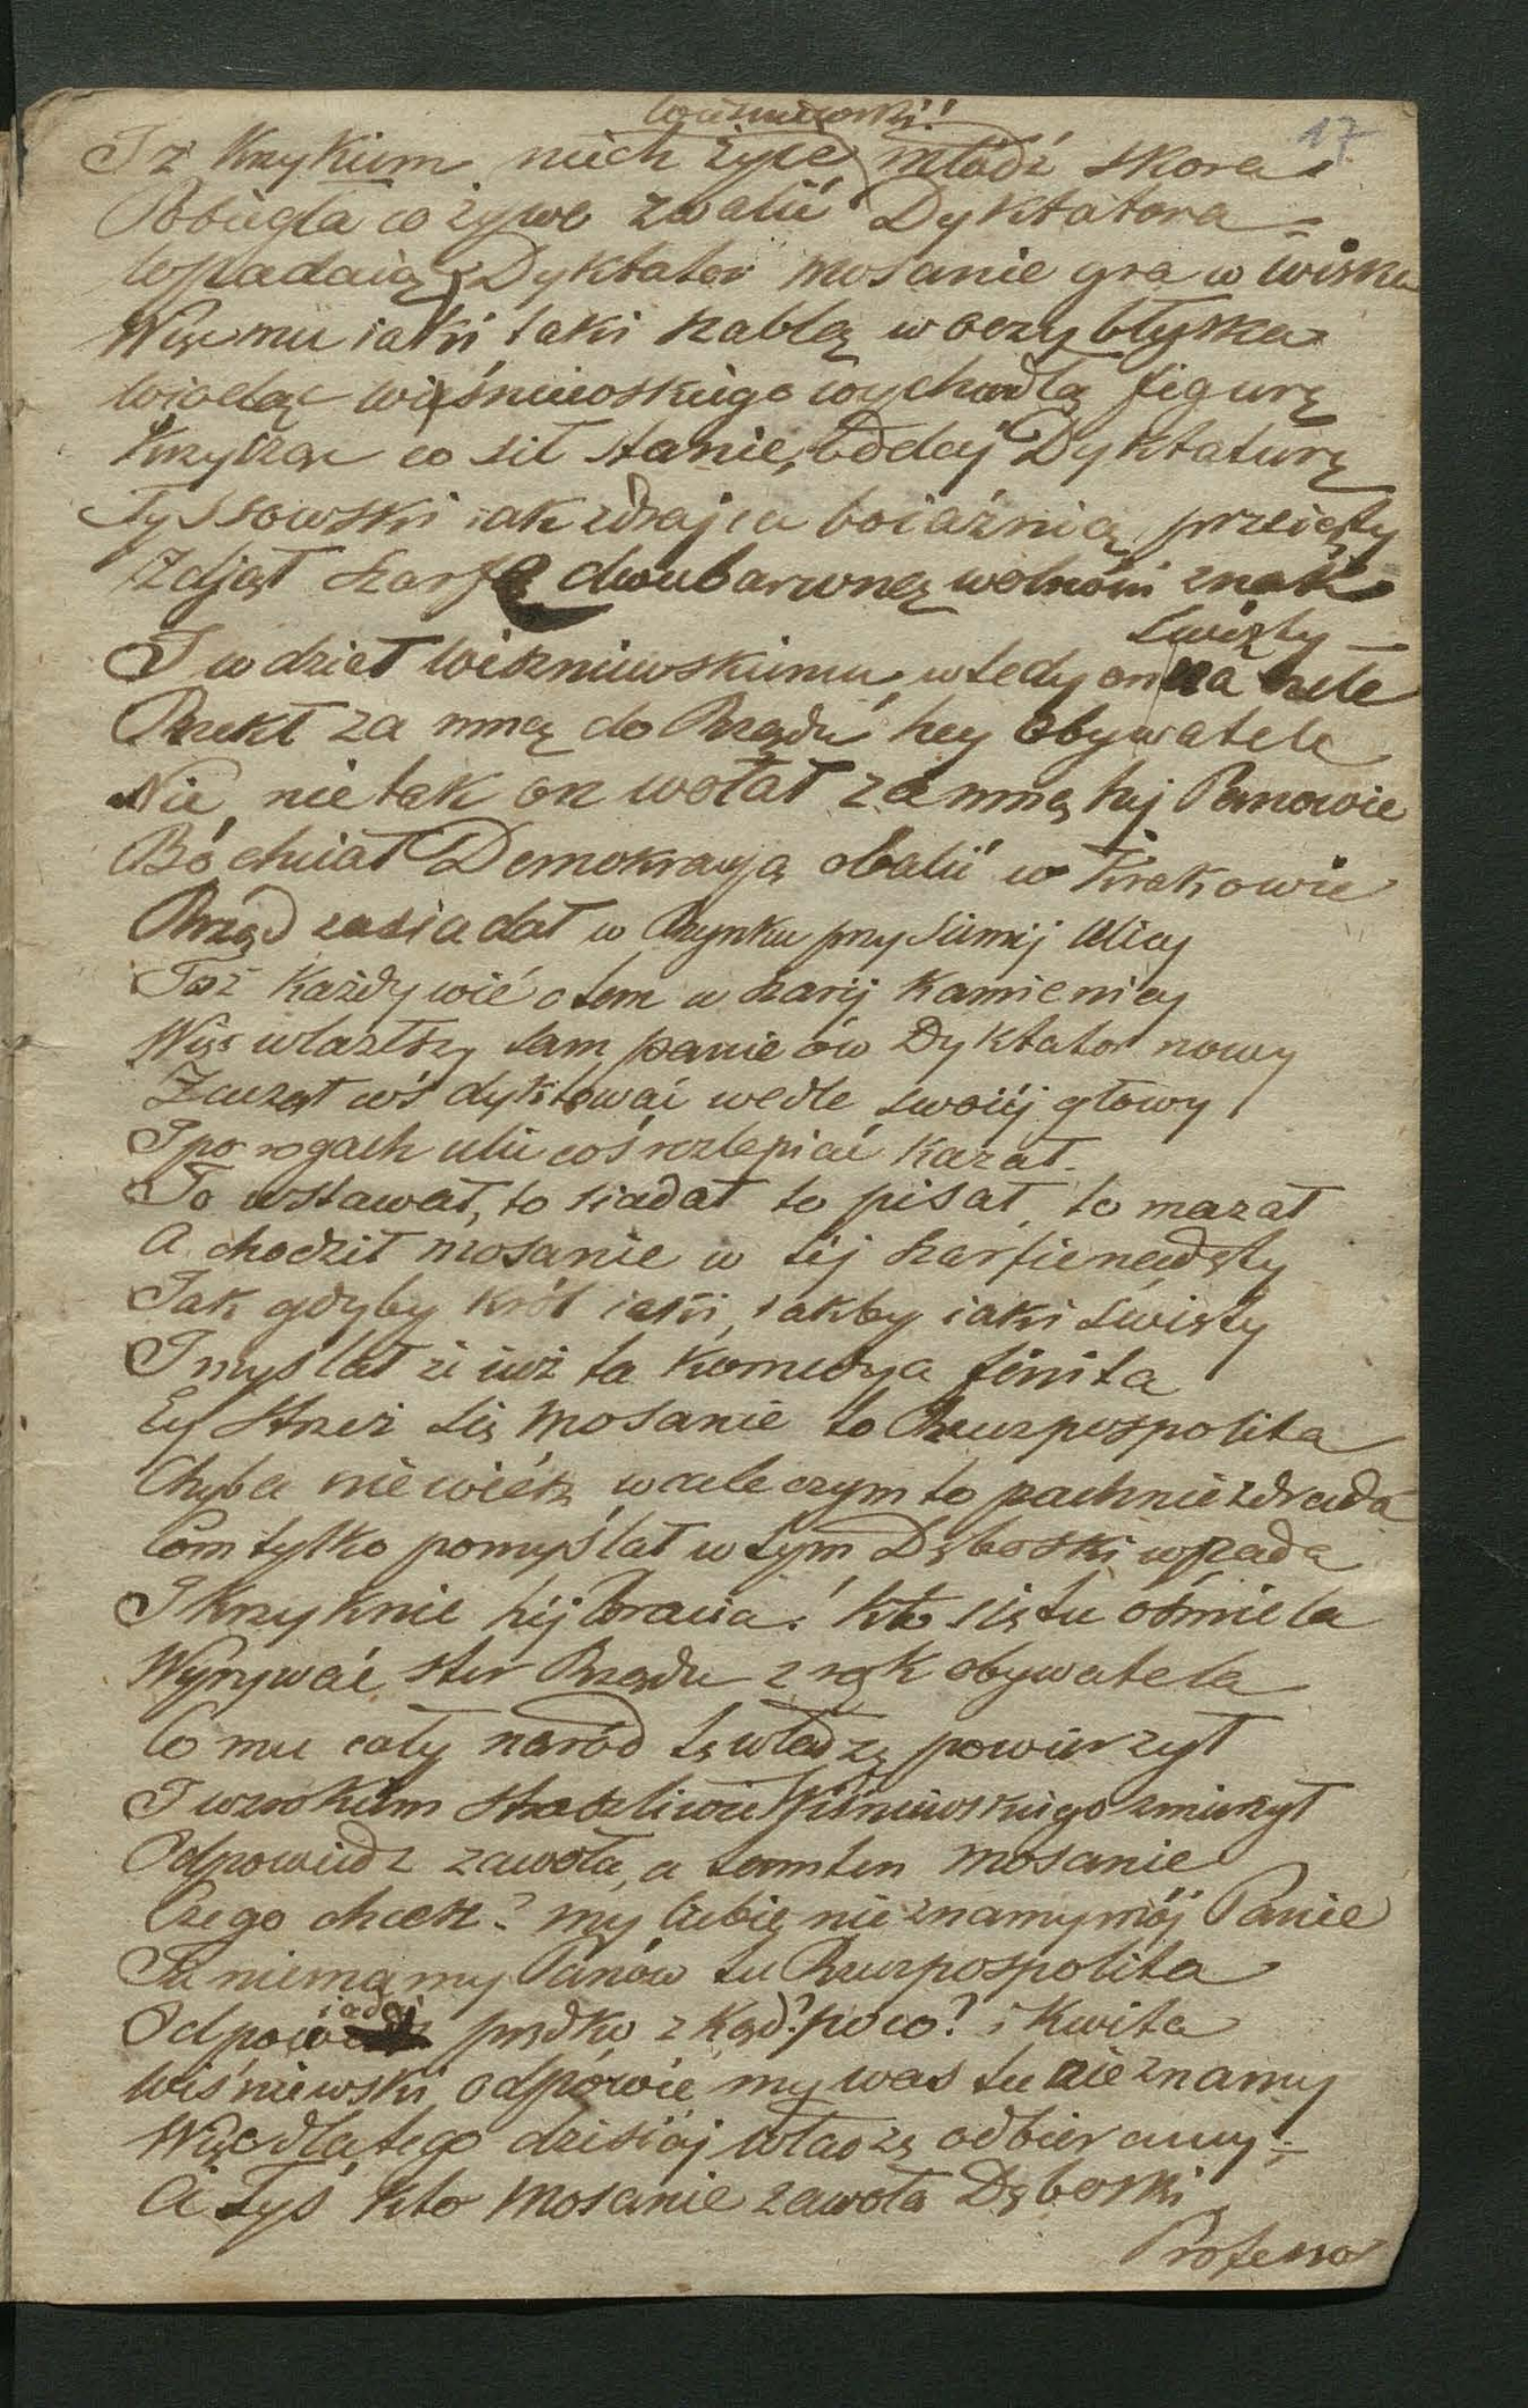 Wiszniewski!
17
I z krzykiem niech żyie młódź skora
Pobiegła co żywo zwalić Dyktatora =
Wpadaią, Dyktator mosanie gra w wiska
Więc mu iaki taki szablą w oczy błyska
Wiodąc Wiśniewskiego wychudłą figurę
Krzycząc co sił stanie, oddaj Dyktaturę
Tyssowski iak zdrajca boiaźnią przeięty
Zdjął szarfę dwubarwną wolności znak
święty —
I wdział Wiszniewskiemu, wtedy on na czele
Rzekł za mną do Rządu hey Obywatele
Nie, nie tak on wołał za mną hej Panowie
Bo chciał Demokracyą obalić w Krakowie
Rząd zasiadał w Rynku przy Sienniej Ulicy
Toż każdy wie o tem w szarej kamienicy
Więc wlazłszy tam panie ów Dyktator nowy
Zaczął cóś dyktować wedle swoiéj głowy
I po rogach ulic coś rozlepiać kazał.
To wstawał, to siadał to pisał, to mazał
A chodził mosanie w téj szarfie nadęty
Jak gdyby król iaki, iakby iaki święty
I myślał że iuż ta komedya finita
Ey strzeż się mosanie to Rzeczpospolita
Chyba nie wiész wcale czym to pachnie zdrada
Com tylko pomyślał w tym Dęboski wpada
I krzyknie héj bracia! kto się tu ośmiela
Wyrywać ster Rządu z rąk obywatela
Co mu cały naród tę władzę powierzył
I wzrokiem straszliwie Wiśniewskiego zmierzył
Odpowiedz zawoła, a tamten mosanie
Czego chcesz? my Ciebie nie znamy mój Panie
Tu niemamy Panów tu Rzeczpospolita
Odpowiadaj prędko zkąd? poco? i kwita
Wiśniewski odpowie my was tu nie znamy
Więc dlatego dzisiaj władzę odbieramy =
A Tyś kto mosanie zawoła Dęboski
Professor